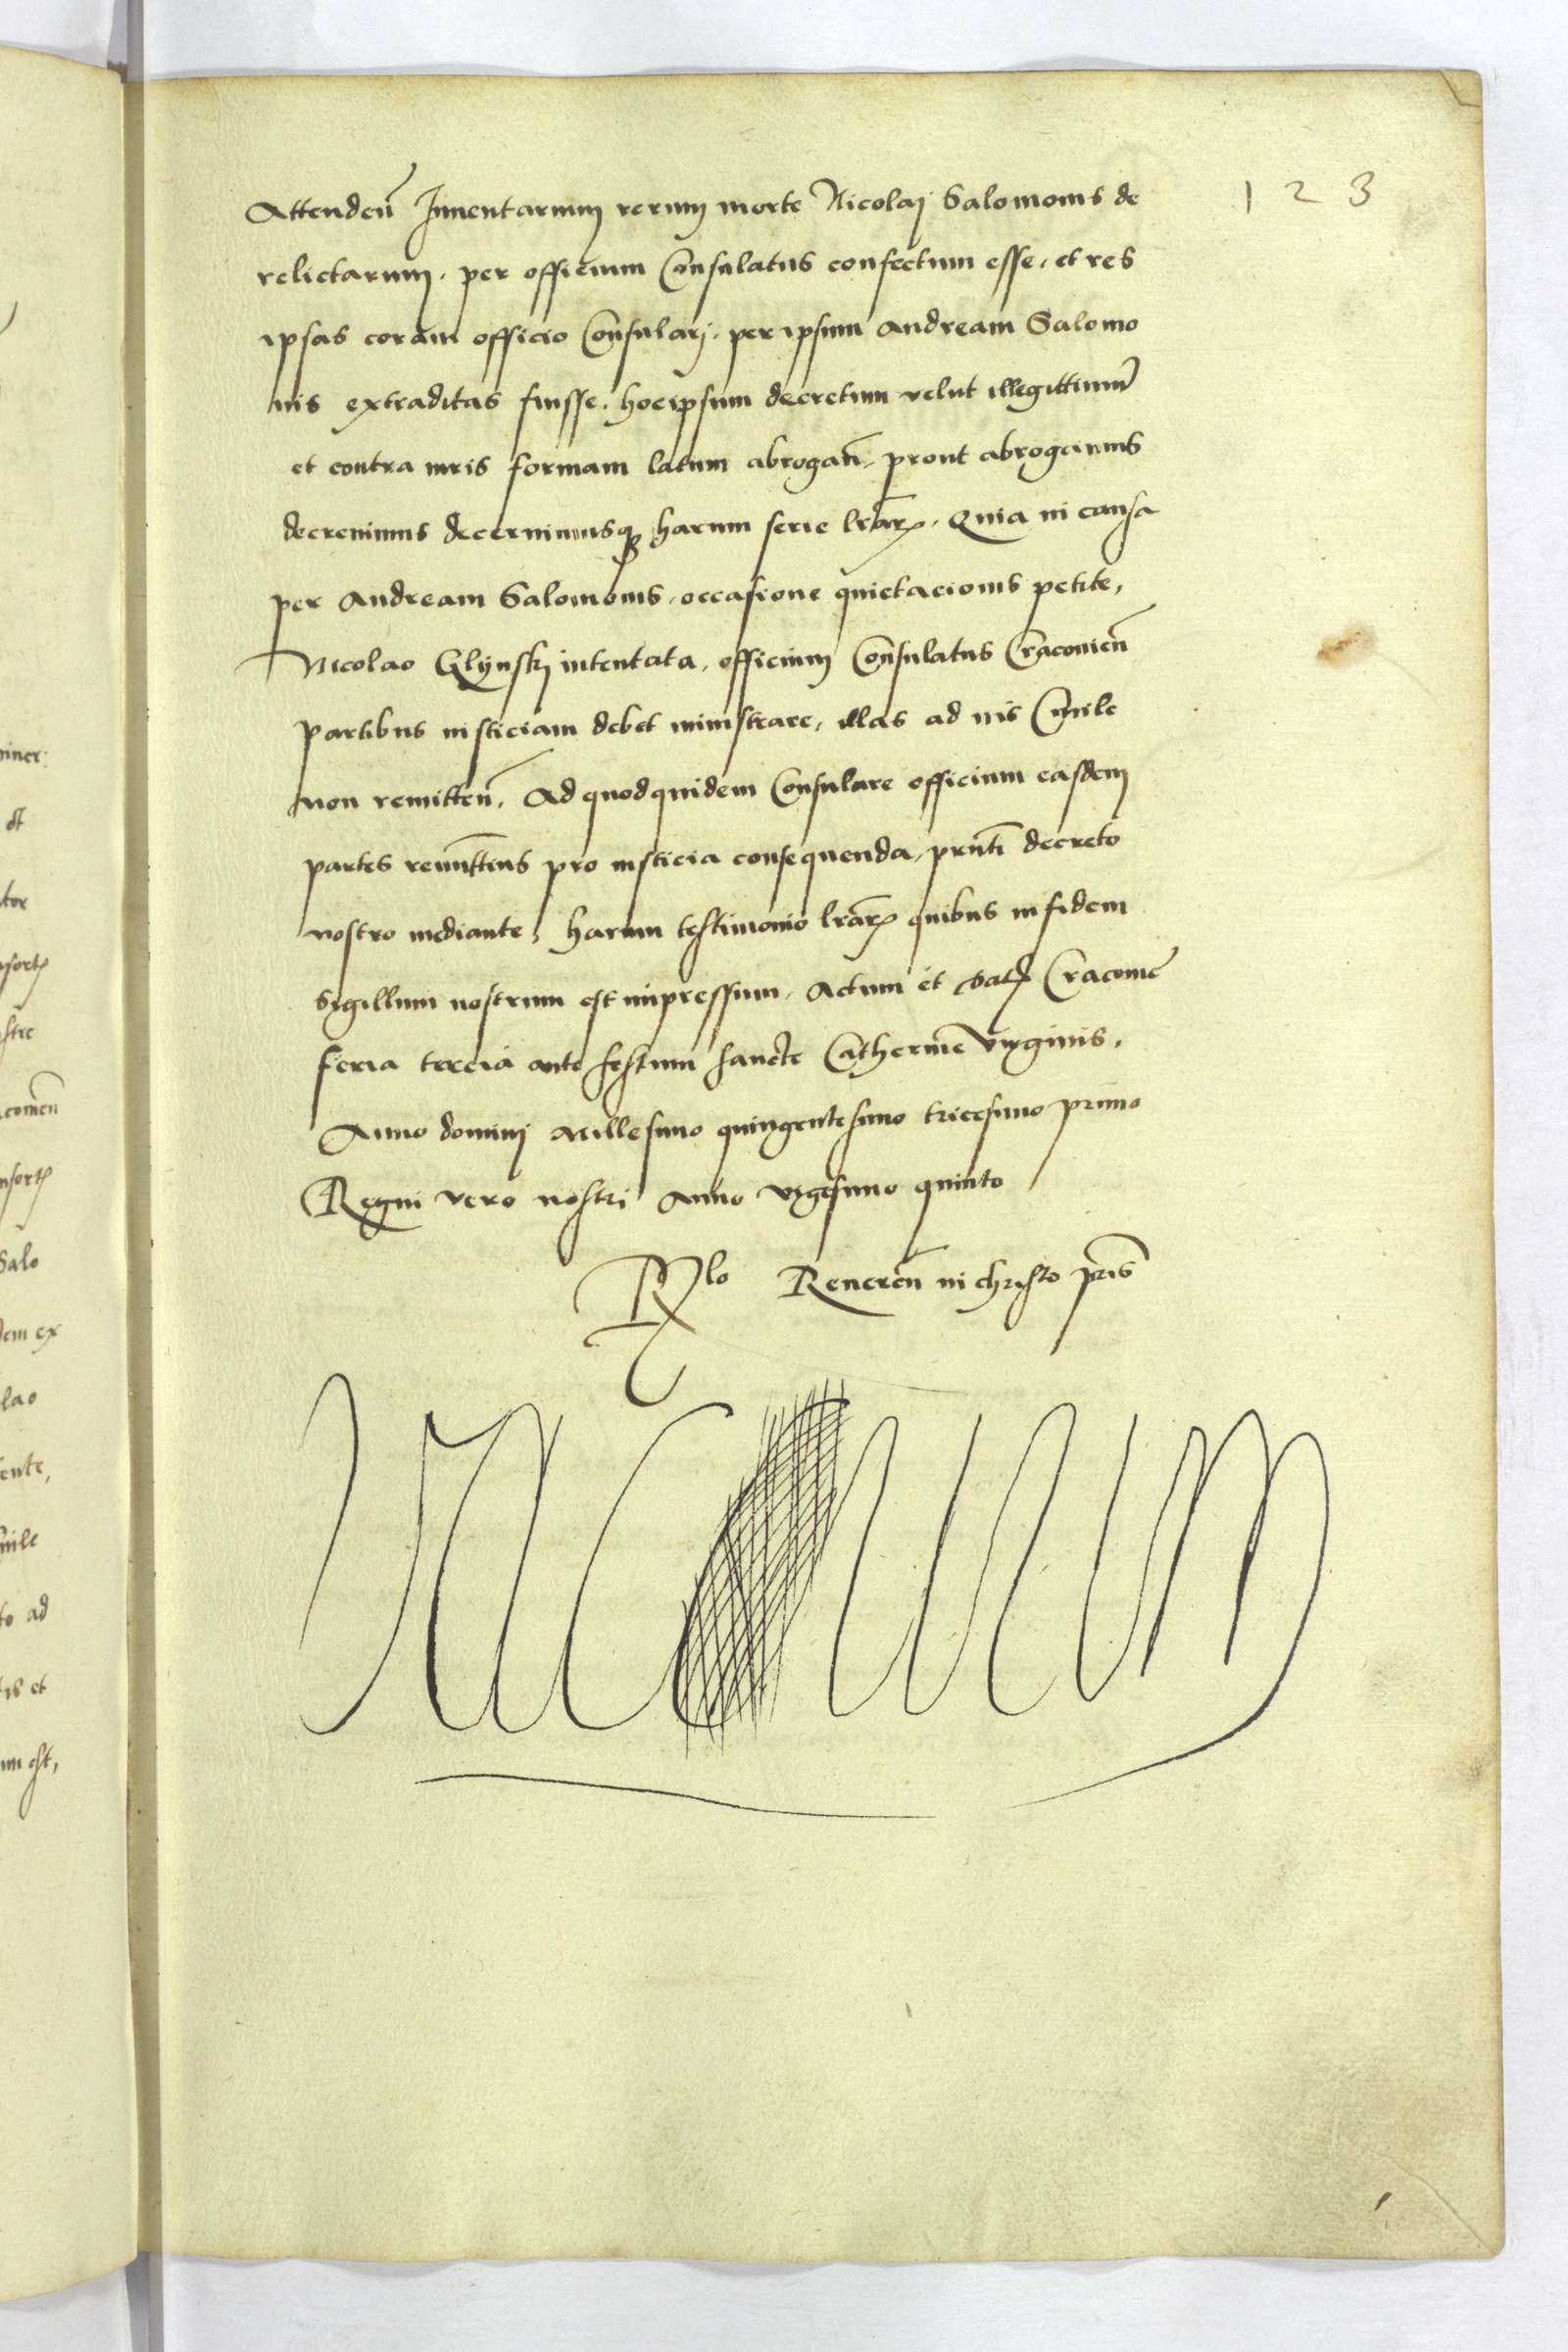 123
Attendeñ Inuentarium rerum morte Nicolaj Salomonis de
relictarum. per officium Consulatus confectum esse. et res
ipsas coram officio Consularj. per ipsum Andream Salomo
nis extraditas fuisse. hocipsum decretum velut illegittimũ
et contra iuris formam latum abrogañ. prout abrogamus
decreuimus decernimusqꝫ harum serie lrãrꝝ. Quia in causa
per Andream Salomonis. occasione quietacionis petite,
Nicolao Glÿnskj intentata. officium Consulatus Cracovieñ
partibus iusticiam debet ministrare, illas ad ius Ciuile
non remitteñ. Ad quodquidem Consulare officium easdem
partes remittimus pro iusticia consequenda, prñti decreto
nostro mediante, harum testimonio lrãrꝝ quibus in fidem
sigillum nostrum est impressum. Actum et datꝭ Cracouie
feria tercia ante festum sancte Catherine virginis.
Anno dominj Millesimo quingentesimo tricesimo primo
Regni vero nostri Anno vigesimo quinto
Rlo Reuereñ in christo pris
Vacauum
miner:
et
tor
nsortꝭ
stre
comeñ
nsortꝭ
Salo
dem ex
lao
ente,
uile
to ad
is et
um est,